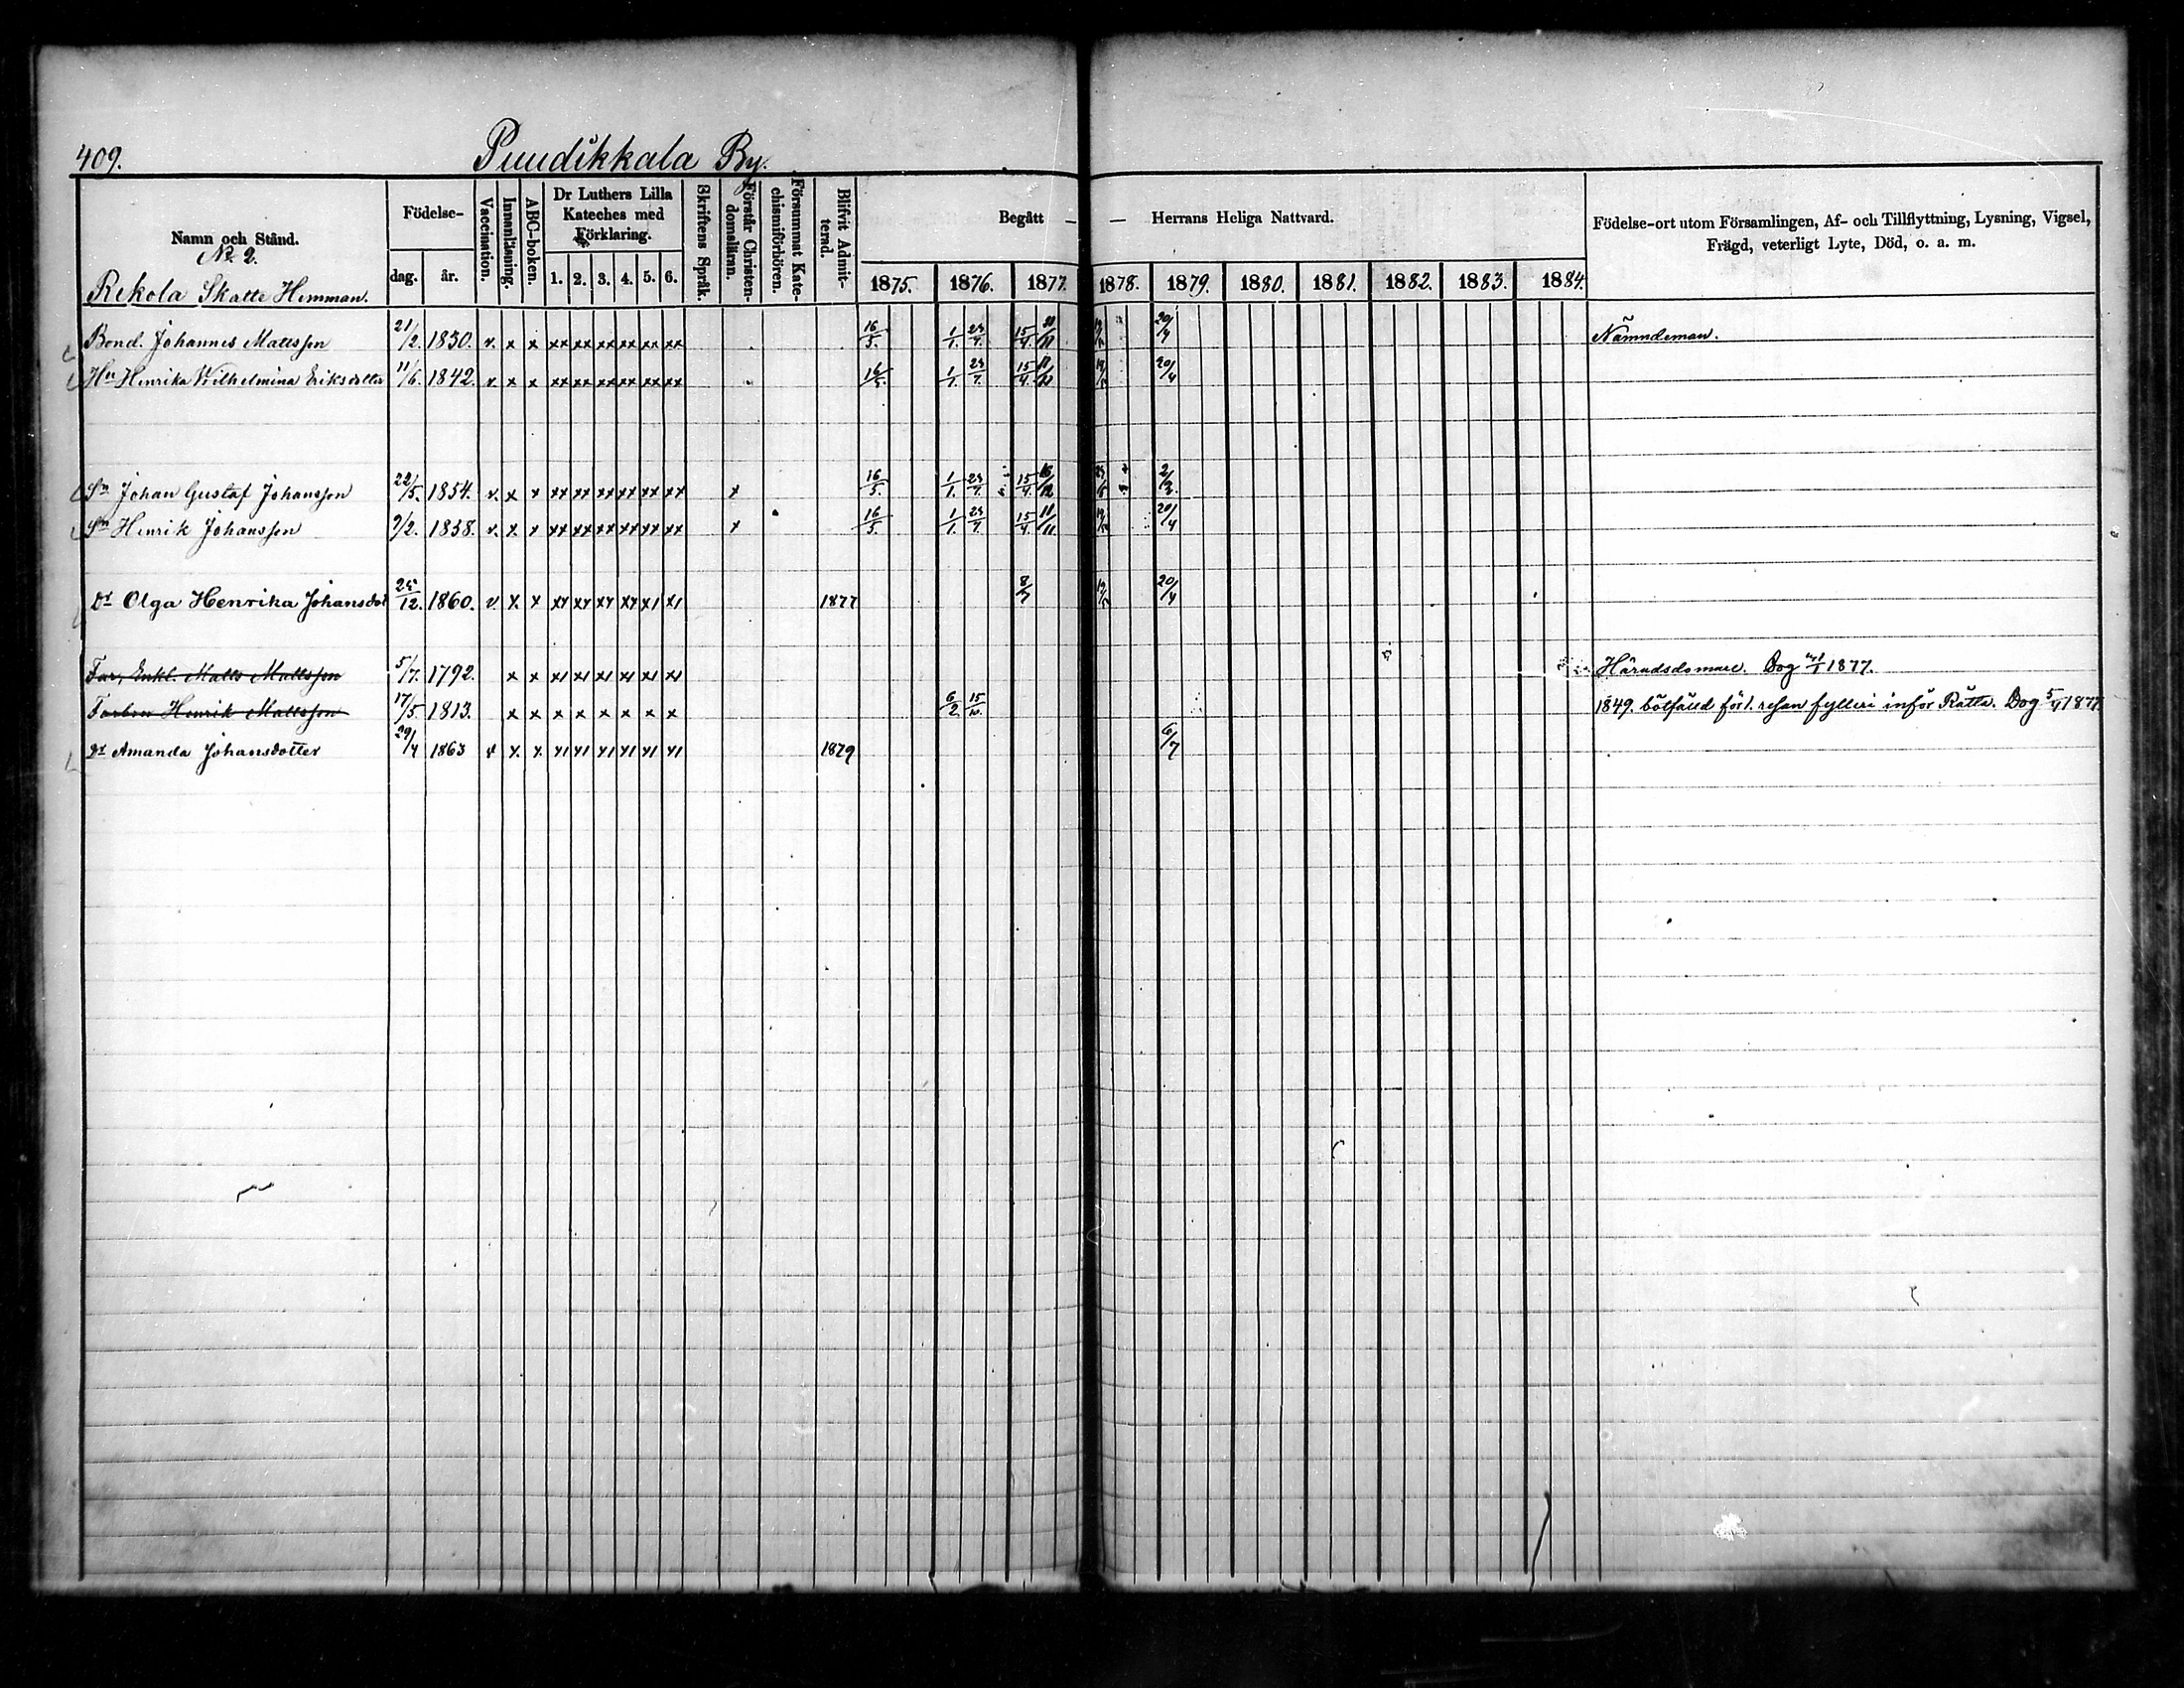 409. Puudikkala By.
Namn och Stånd.
No 2.
Rekola Skatte Hemman.
Födelse-
dag. år.
Vaccination.
Innanläsning.
ABC-boken.
Dr Luthers Lilla
Kateches med
Förklaring.
1. 2. 3. 4. 5. 6.
Skriftens Språk.
Förstår Christen-
domsläran.
Försummat Kate-
chismiförhören.
Blifvit Admit-
terad.
Begått — — Herrans Heliga Nattvard.
1875. 1876. 1877. 1878. 1879. 1880. 1881. 1882. 1883. 1884.
Födelse-ort utom Församlingen, Af- och Tillflyttning, Lysning, Vigsel,
Frägd, veterligt Lyte, Död, o. a. m.
Bond. Johannes Mattsson 21/2. 1830. v. x x xx xx xx xx xx xx 16/5. 1/1. 23/7. 15/4. 20/4 Nämndeman.
Hu Henrika Wilhelmina Eriksdotter 11/6. 1842. v. x x xx xx xx xx xx xx 16/5. 1/1. 23/7. 15/4. 20/4
Sn Johan Gustaf Johansson 22/5. 1854. v. x x xx xx xx xx xx xx x 16/5. 1/1. 23/7. 15/4. 16/12 2/2.
Sn Henrik Johansson 9/2. 1858. v. x x xx xx xx xx xx xx x 16/5. 1/1. 23/7. 15/4. 11/11 20/4
Dr Olga Henrika Johansdot 25/12. 1860. v x x xx xx xx xx x1 x1 1877 8/7 20/4
Far, Enkl. Matts Mattsson 5/7. 1792. x x x1 x1 x1 x1 x1 x1 Häradsdomare. Dog 1877.
Farbror Henrik Mattsson 17/5. 1813. x x x x x x x x 6/2 15/10. 1849. bötfäld för 1. resan fylleri inför Rätta. Dog 5/4 1877
Dr Amanda Johansdotter 29/4 1863 v x x x1 x1 x1 x1 x1 x1 1879 6/7